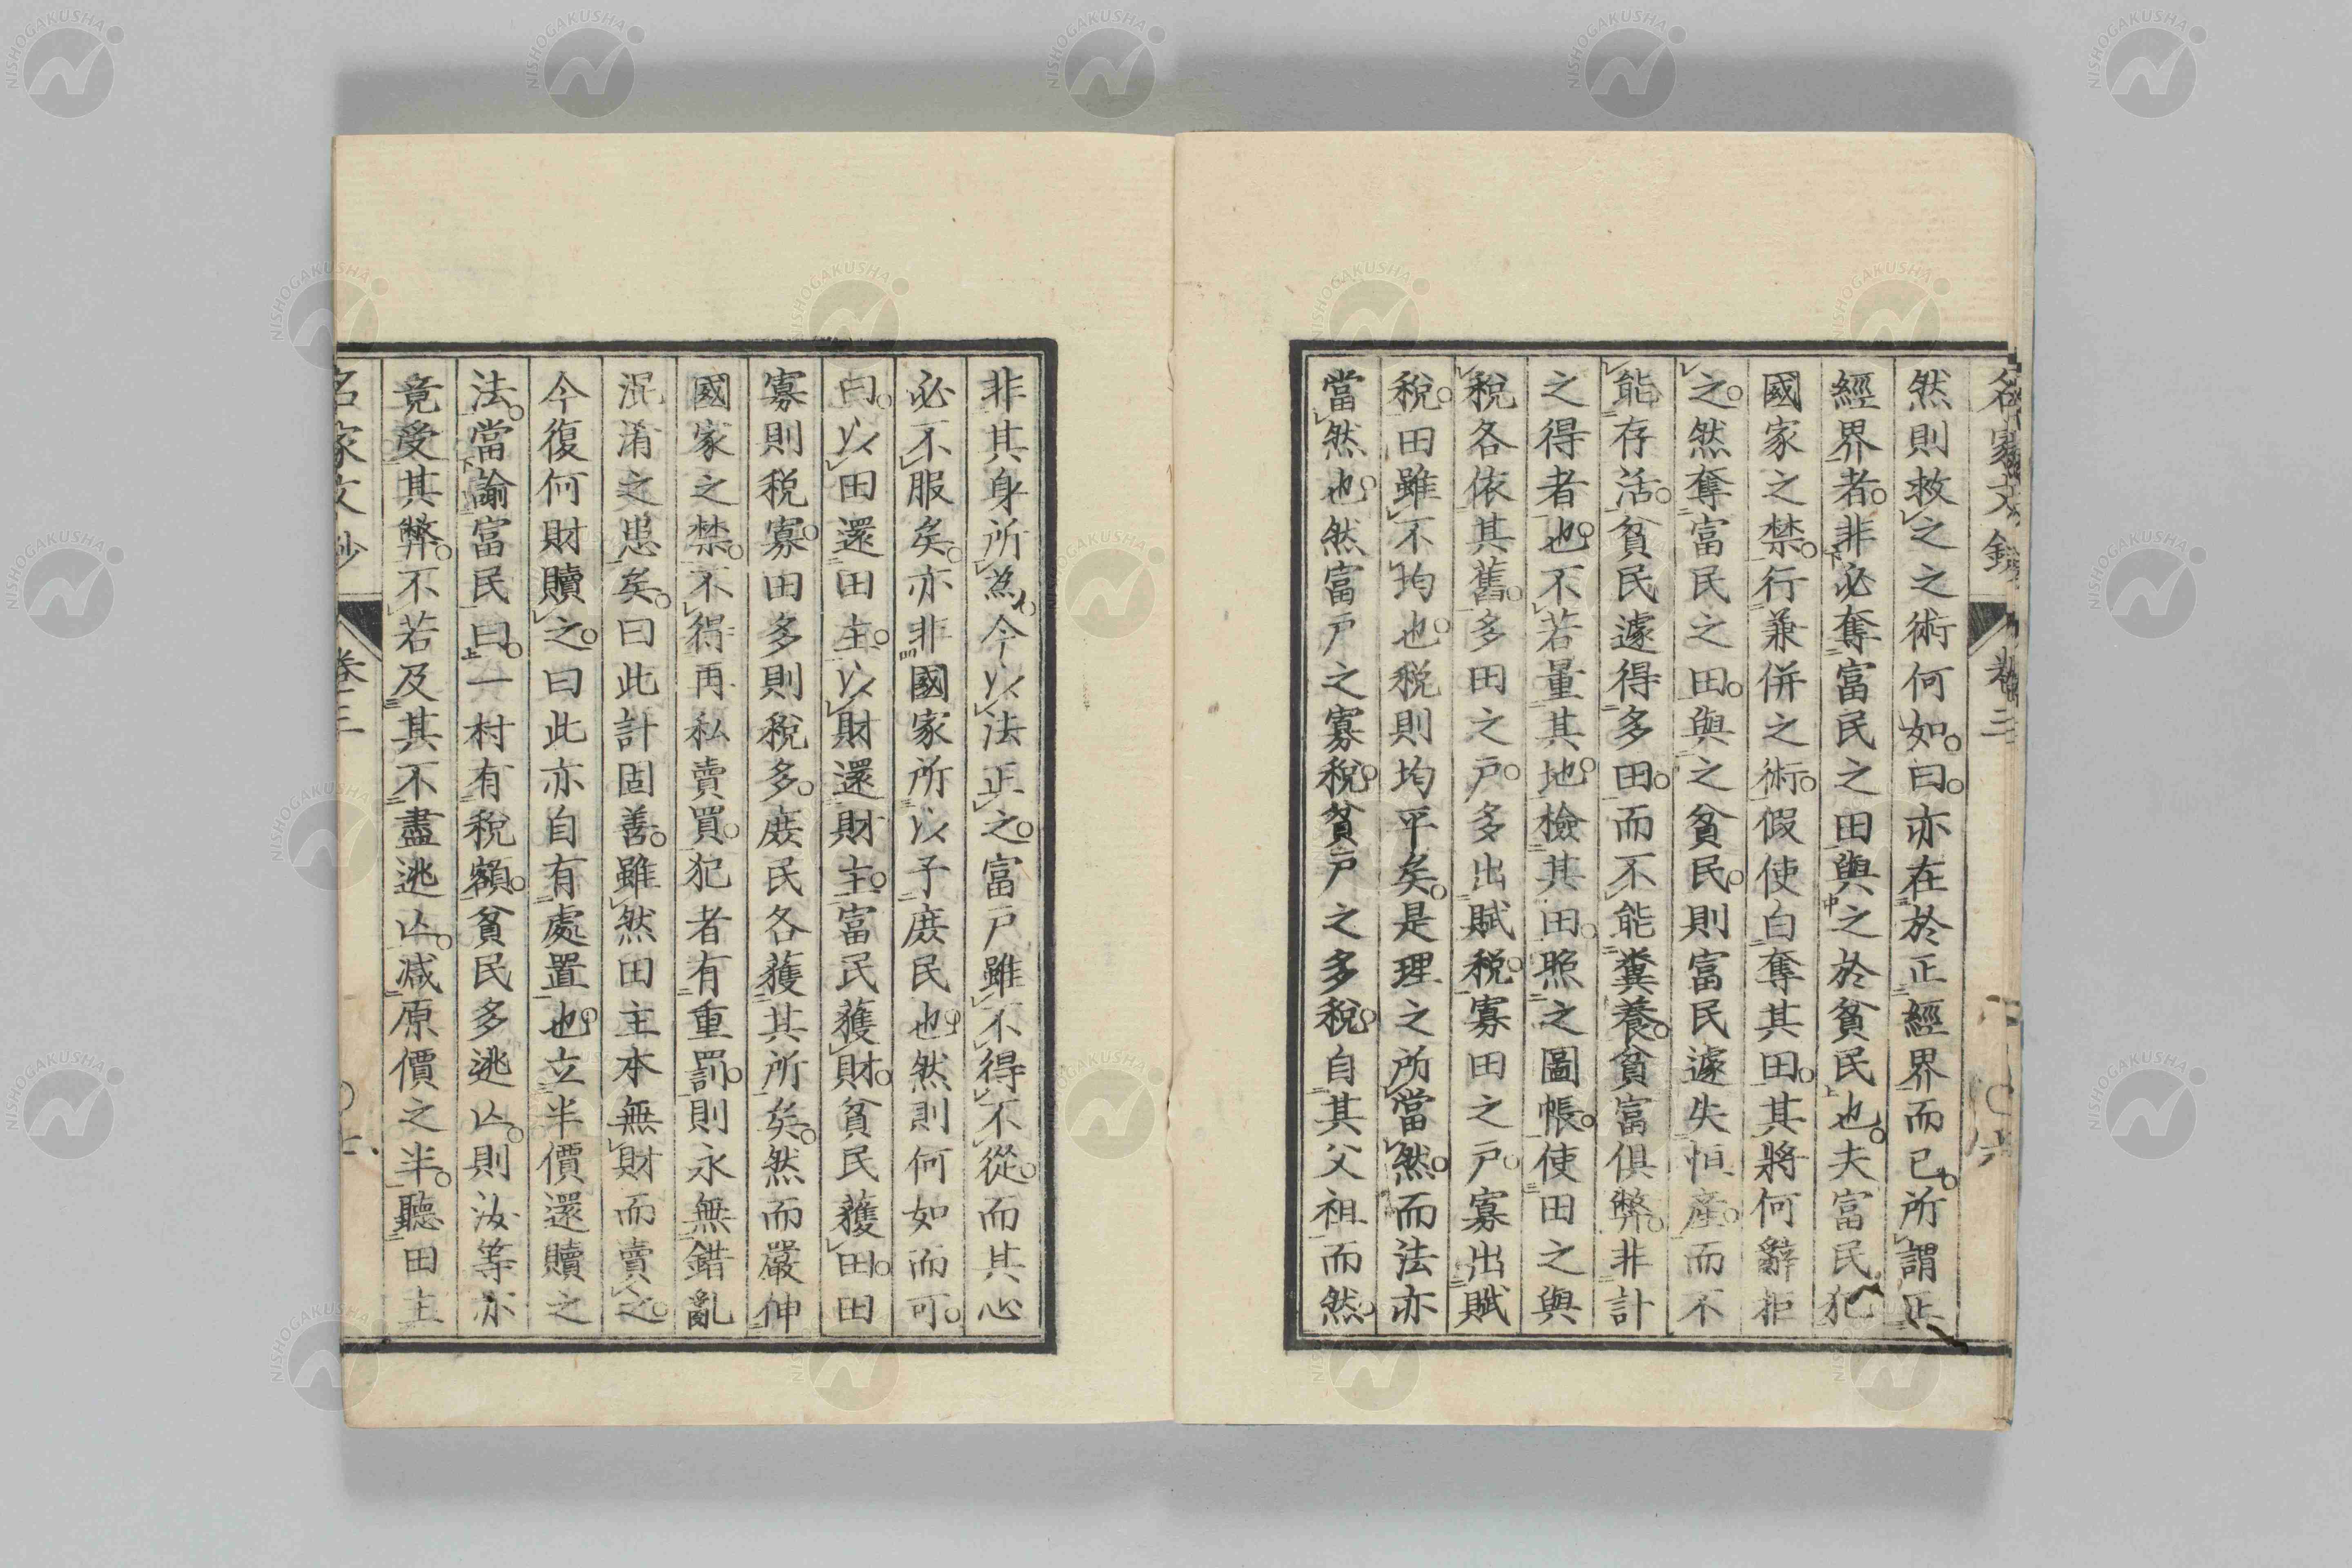 名家文鈔 卷三
然則救之之術何如。曰。亦在於正經界而已。所謂正
經界者。非必奪富民之田與之於貧民也。夫富民犯
國家之禁。行兼併之術。假使白奪其田。其將何辭拒
之。然奪富民之田。與之貧民。則富民遽失恒產。而不
能存活。貧民遽得多田。而不能糞養。貧富俱弊。非計
之得者也。不若量其地。檢其田。照之圖帳。使田之與
稅各依其舊。多田之戶。多出賦稅。寡田之戶。寡出賦
稅。田雖不均也。稅則均平矣。是理之所當然。而法亦
當然也。然富戶之寡稅。貧戶之多稅。自其父祖而然。
非其身所為。今以法正之。富戶雖不得不從。而其心
必不服矣。亦非國家所以子庶民也。然則何如而可。
曰。以田還田主。以財還財主。富民獲財。貧民獲田。田
寡則稅寡。田多則稅多。庶民各獲其所矣。然而嚴伸
國家之禁。不得再私賣買。犯者有重罰。則永無錯亂
混淆之患矣。曰此計固善。雖然田主本無財而賣之。
今復何財贖之。曰此亦自有處置也。立半價還贖之
法。當諭富民曰。一村有稅額。貧民多逃亾。則汝等亦
竟受其弊。不若及其不盡逃亾。減原價之半。聽田主
名家文鈔 卷三